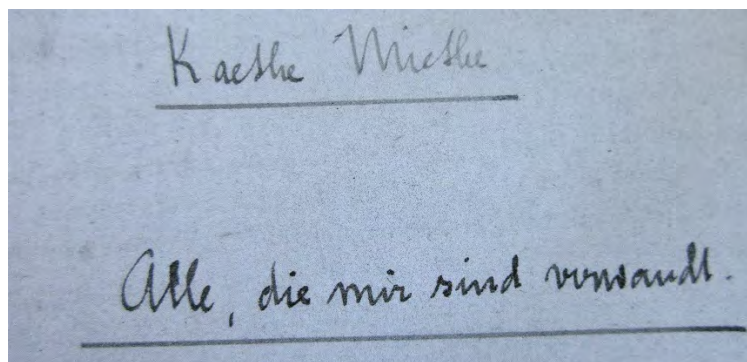 Kaethe Miethe
Alle, die mir sind verwandt.